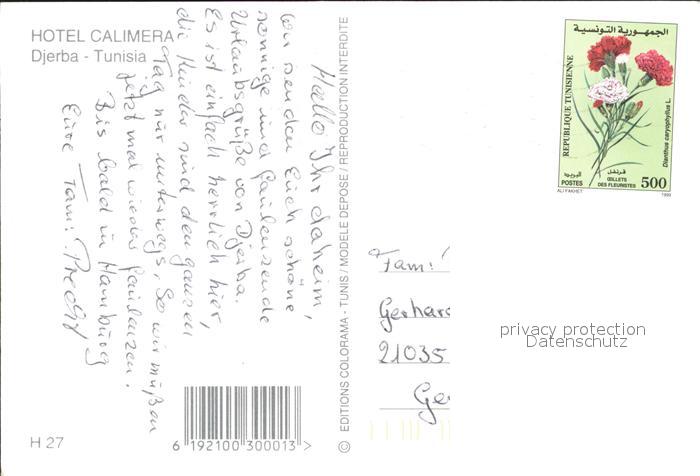 HOTEL CALIMERA
Djerba - Tunisia
Hallo Ihr daheim,
wir senden Euch schöne
sonnige und faulenzende
Urlaubsgrüße von Djerba.
Es ist einfach herrlich hier,
die Kinder sind den ganzen
Tag nur unterwegs, so wir müßen
jetzt mal wieder faulenzen.
Bis bald in Hamburg
Eure Fam.
H 27
6 192100 300013 >
© EDITIONS COLORAMA - TUNIS / MODELE DEPOSE / REPRODUCTION INTERDITE
الجمهورية التونسية
REPUBLIQUE TUNISIENNE
Dianthus caryophyllus L.
قرنفل
البريد
POSTES
ŒILLETS
DES FLEURISTES
500
ALI FAKHET
1999
Fam.
Gerhard
21035
Ge
privacy protection
Datenschutz